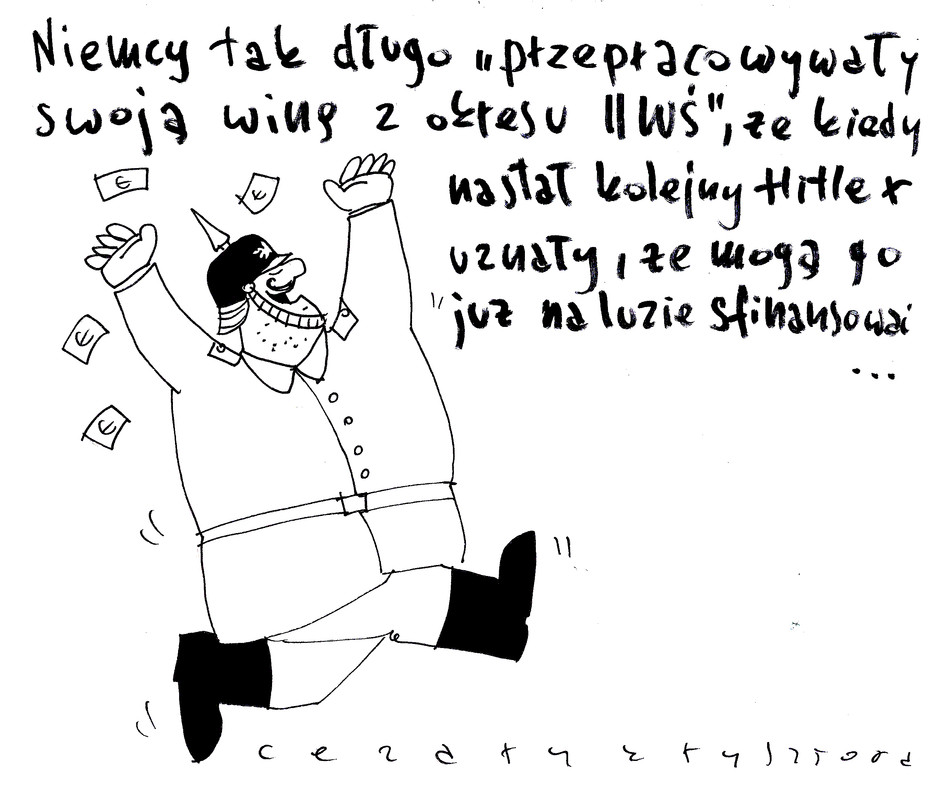 Niemcy tak długo „przepracowywały
swoją winę z okresu II WŚ”, że kiedy
nastał kolejny Hitler
uznały, że mogą go
już na luzie sfinansować
...
€
€
€
€
cezary krysztopa